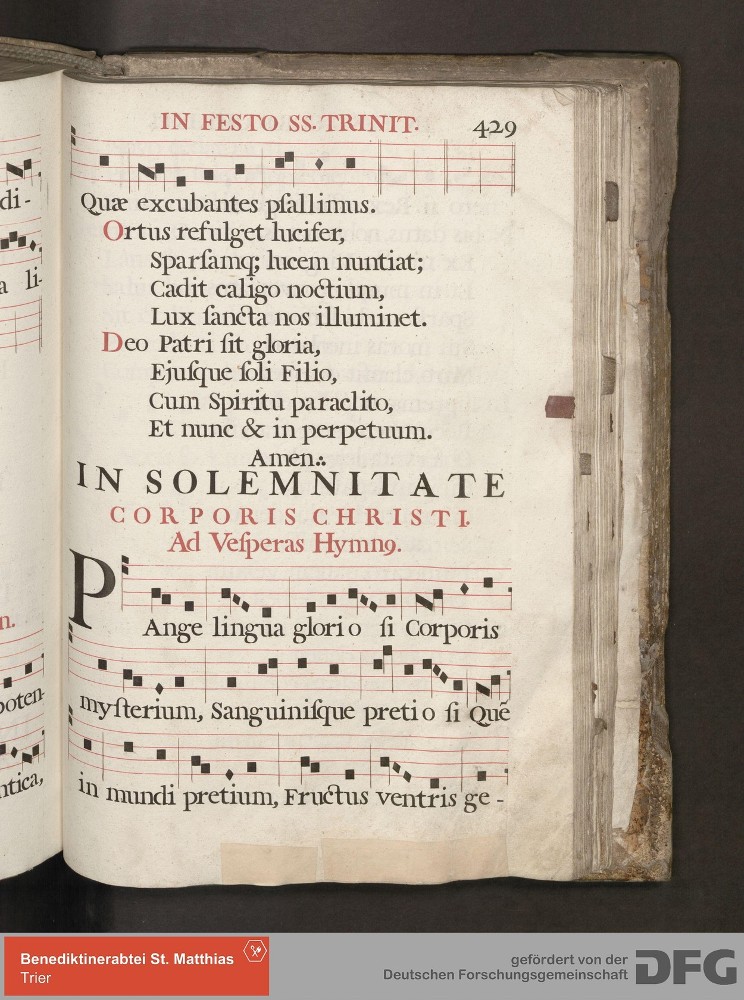 IN FESTO SS. TRINIT. 429
di-
Quæ excubantes pſallimus.
Ortus refulget lucifer,
Sparſamq; lucem nuntiat;
a li-
Cadit caligo noctium,
Lux ſancta nos illuminet.
Deo Patri ſit gloria,
Ejuſque ſoli Filio,
Cum Spiritu paraclito,
Et nunc & in perpetuum.
Amen.
IN SOLEMNITATE
CORPORIS CHRISTI.
Ad Veſperas Hymnꝯ.
n.
PAnge lingua glorio ſi Corporis
poten-
myſterium, Sanguiniſque pretio ſi Quẽ
ntica,
in mundi pretium, Fructus ventris ge-
Benediktinerabtei St. Matthias
Trier
gefördert von der
Deutschen Forschungsgemeinschaft
DFG